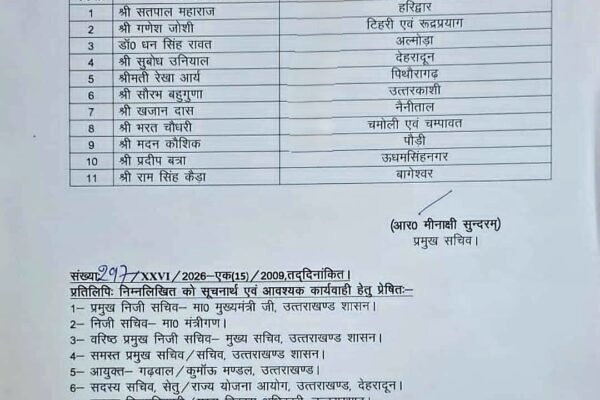 1 श्री सतपाल महाराज हरिद्वार
2 श्री गणेश जोशी टिहरी एवं रूद्रप्रयाग
3 डॉ0 धन सिंह रावत अल्मोड़ा
4 श्री सुबोध उनियाल देहरादून
5 श्रीमती रेखा आर्य पिथौरागढ़
6 श्री सौरभ बहुगुणा उत्तरकाशी
7 श्री खजान दास नैनीताल
8 श्री भरत चौधरी चमोली एवं चम्पावत
9 श्री मदन कौशिक पौड़ी
10 श्री प्रदीप बत्रा ऊधमसिंहनगर
11 श्री राम सिंह कैड़ा बागेश्वर
(आर0 मीनाक्षी सुन्दरम्)
प्रमुख सचिव।
संख्या 297/XXVI/2026–एक(15)/2009,तद्दिनांकित।
प्रतिलिपिः निम्नलिखित को सूचनार्थ एवं आवश्यक कार्यवाही हेतु प्रेषितः–
1– प्रमुख निजी सचिव– मा0 मुख्यमंत्री जी, उत्तराखण्ड शासन।
2– निजी सचिव– मा0 मंत्रीगण।
3– वरिष्ठ प्रमुख निजी सचिव– मुख्य सचिव, उत्तराखण्ड शासन।
4– समस्त प्रमुख सचिव/सचिव, उत्तराखण्ड शासन।
5– आयुक्त– गढ़वाल/कुमाँऊ मण्डल, उत्तराखण्ड।
6– सदस्य सचिव, सेतु/राज्य योजना आयोग, उत्तराखण्ड, देहरादून।